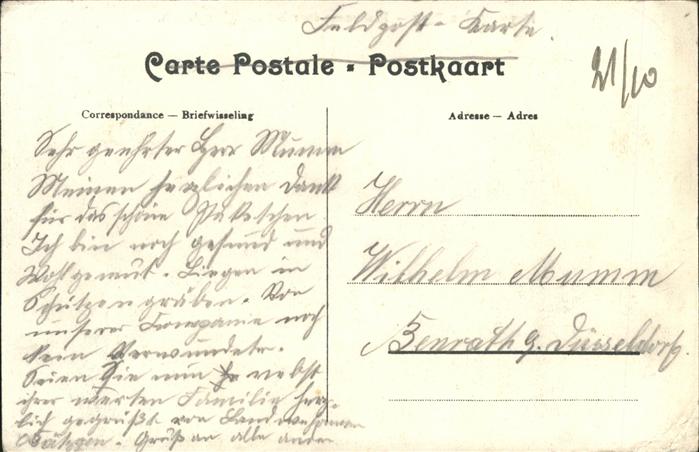 Feldpost-Karte.
Carte Postale - Postkaart
21/10
Correspondance — Briefwisseling
Adresse — Adres
Sehr geehrter Herr Mumm
Meinen herzlichen Dank
für das schöne Paketchen
Ich bin noch gesund und
Wolgemut. Liegen in
Schützengräben. Von
unserer Companie noch
kein Verwundeter.
Seien Sie nun nebst
ihrer werten Familie herz-
lich gegrüßt von Landwehrmann
Gruß an alle andern
Herrn
Wilhelm Mumm
Benrath b. Düsseldorf